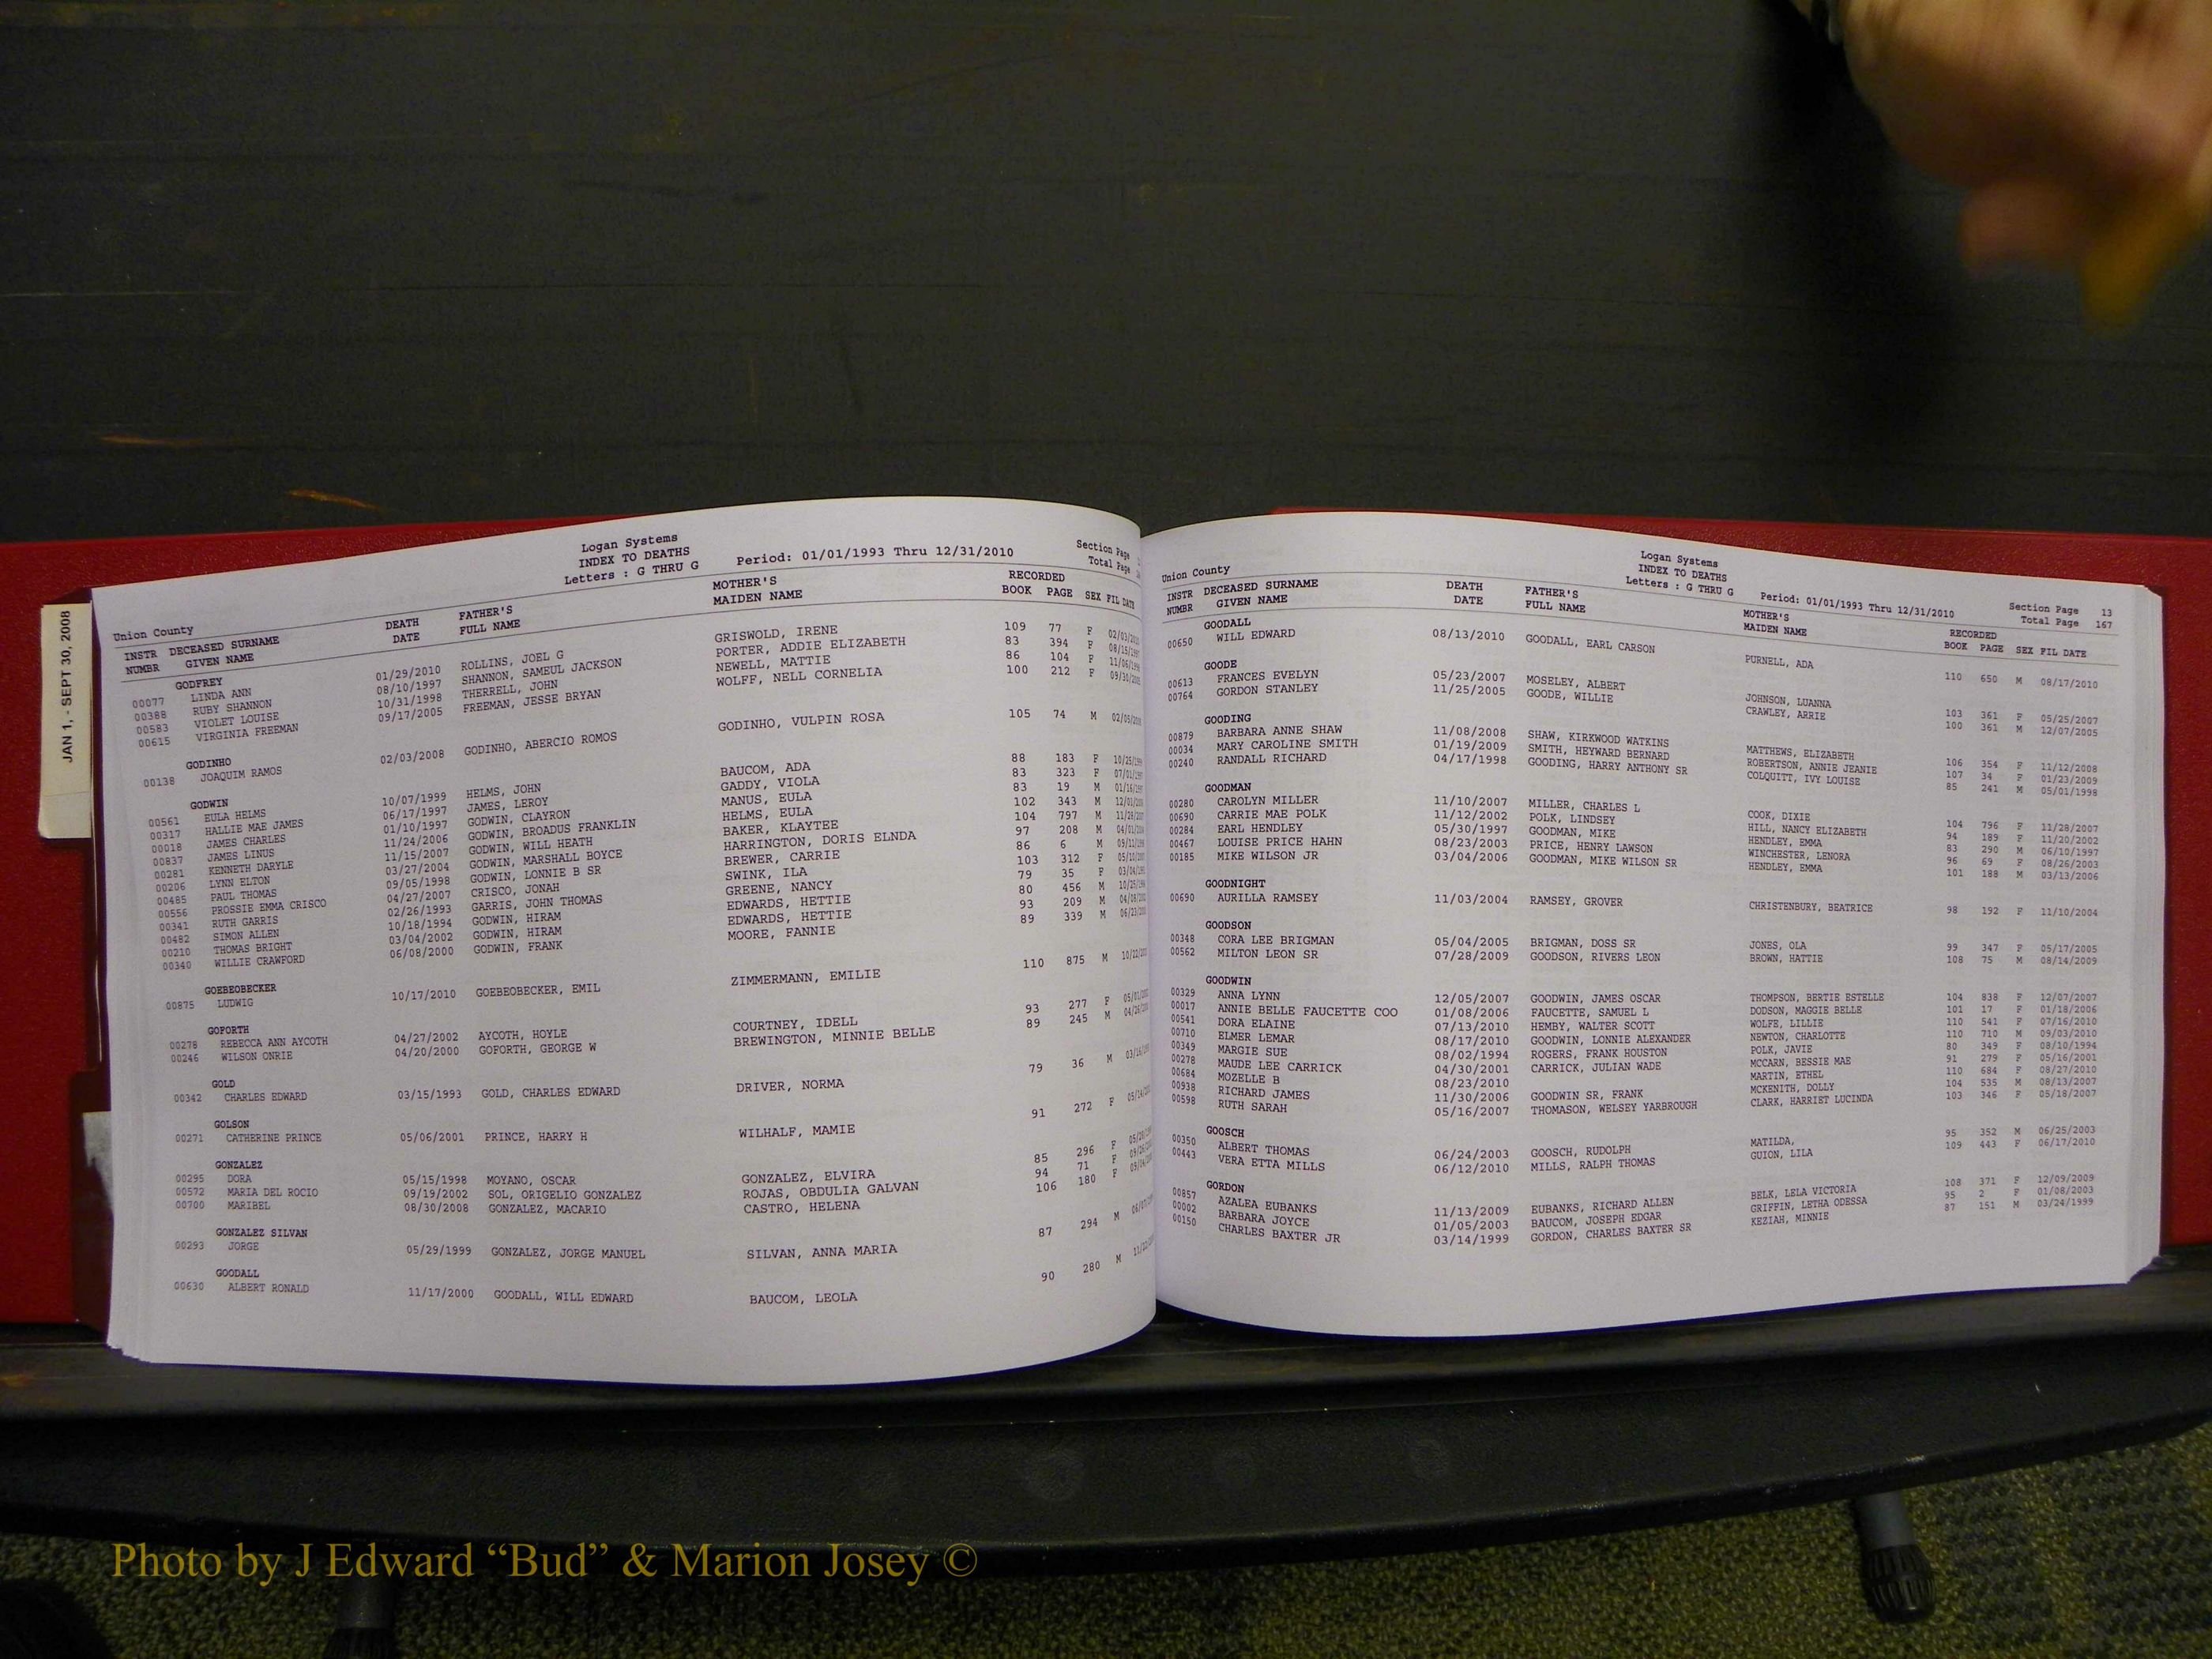 JAN 1, - SEPT 30, 2008
Logan Systems
INDEX TO DEATHS
Letters : G THRU G
Period: 01/01/1993 Thru 12/31/2010
Section Page
Total Page
Union County
INSTR DECEASED SURNAME DEATH FATHER'S MOTHER'S RECORDED
NUMBR GIVEN NAME DATE FULL NAME MAIDEN NAME BOOK PAGE SEX FIL DATE
GODFREY
00077 LINDA ANN 01/29/2010 ROLLINS, JOEL G GRISWOLD, IRENE 109 77 F
00388 RUBY SHANNON 08/10/1997 SHANNON, SAMEUL JACKSON PORTER, ADDIE ELIZABETH 83 394 F
00583 VIOLET LOUISE 10/31/1998 THERRELL, JOHN NEWELL, MATTIE 86 104 F
00615 VIRGINIA FREEMAN 09/17/2005 FREEMAN, JESSE BRYAN WOLFF, NELL CORNELIA 100 212 F
GODINHO
00138 JOAQUIM RAMOS 02/03/2008 GODINHO, ABERCIO ROMOS GODINHO, VULPIN ROSA 105 74 M
GODWIN
00561 EULA HELMS 10/07/1999 HELMS, JOHN BAUCOM, ADA 88 183 F
00317 HALLIE MAE JAMES 06/17/1997 JAMES, LEROY GADDY, VIOLA 83 323 F
00018 JAMES CHARLES 01/10/1997 GODWIN, CLAYRON MANUS, EULA 83 19 M
00837 JAMES LINUS 11/24/2006 GODWIN, BROADUS FRANKLIN HELMS, EULA 102 343 M
00281 KENNETH DARYLE 11/15/2007 GODWIN, WILL HEATH BAKER, KLAYTEE 104 797 M
00206 LYNN ELTON 03/27/2004 GODWIN, MARSHALL BOYCE HARRINGTON, DORIS ELNDA 97 208 M
00485 PAUL THOMAS 09/05/1998 GODWIN, LONNIE B SR BREWER, CARRIE 86 6 M
00556 PROSSIE EMMA CRISCO 04/27/2007 CRISCO, JONAH SWINK, ILA 103 312 F
00341 RUTH GARRIS 02/26/1993 GARRIS, JOHN THOMAS GREENE, NANCY 79 35 F
00482 SIMON ALLEN 10/18/1994 GODWIN, HIRAM EDWARDS, HETTIE 80 456 M
00210 THOMAS BRIGHT 03/04/2002 GODWIN, HIRAM EDWARDS, HETTIE 93 209 M
00340 WILLIE CRAWFORD 06/08/2000 GODWIN, FRANK MOORE, FANNIE 89 339 M
GOEBEOBECKER
00875 LUDWIG 10/17/2010 GOEBEOBECKER, EMIL ZIMMERMANN, EMILIE 110 875 M
GOFORTH
00278 REBECCA ANN AYCOTH 04/27/2002 AYCOTH, HOYLE COURTNEY, IDELL 93 277 F
00246 WILSON ONRIE 04/20/2000 GOFORTH, GEORGE W BREWINGTON, MINNIE BELLE 89 245 M
GOLD
00342 CHARLES EDWARD 03/15/1993 GOLD, CHARLES EDWARD DRIVER, NORMA 79 36 M
GOLSON
00271 CATHERINE PRINCE 05/06/2001 PRINCE, HARRY H WILHALF, MAMIE 91 272 F
GONZALEZ
00295 DORA 05/15/1998 MOYANO, OSCAR GONZALEZ, ELVIRA 85 296 F
00572 MARIA DEL ROCIO 09/19/2002 SOL, ORIGELIO GONZALEZ ROJAS, OBDULIA GALVAN 94 71 F
00700 MARIBEL 08/30/2008 GONZALEZ, MACARIO CASTRO, HELENA 106 180 F
GONZALEZ SILVAN
00293 JORGE 05/29/1999 GONZALEZ, JORGE MANUEL SILVAN, ANNA MARIA 87 294 M
GOODALL
00630 ALBERT RONALD 11/17/2000 GOODALL, WILL EDWARD BAUCOM, LEOLA 90 280 M
Logan Systems
INDEX TO DEATHS
Letters : G THRU G
Period: 01/01/1993 Thru 12/31/2010
Section Page 13
Total Page 167
Union County
INSTR DECEASED SURNAME DEATH FATHER'S MOTHER'S RECORDED
NUMBR GIVEN NAME DATE FULL NAME MAIDEN NAME BOOK PAGE SEX FIL DATE
GOODALL
00650 WILL EDWARD 08/13/2010 GOODALL, EARL CARSON PURNELL, ADA 110 650 M 08/17/2010
GOODE
00613 FRANCES EVELYN 05/23/2007 MOSELEY, ALBERT JOHNSON, LUANNA 103 361 F 05/25/2007
00764 GORDON STANLEY 11/25/2005 GOODE, WILLIE CRAWLEY, ARRIE 100 361 M 12/07/2005
GOODING
00879 BARBARA ANNE SHAW 11/08/2008 SHAW, KIRKWOOD WATKINS MATTHEWS, ELIZABETH 106 354 F 11/12/2008
00034 MARY CAROLINE SMITH 01/19/2009 SMITH, HEYWARD BERNARD ROBERTSON, ANNIE JEANIE 107 34 F 01/23/2009
00240 RANDALL RICHARD 04/17/1998 GOODING, HARRY ANTHONY SR COLQUITT, IVY LOUISE 85 241 M 05/01/1998
GOODMAN
00280 CAROLYN MILLER 11/10/2007 MILLER, CHARLES L COOK, DIXIE 104 796 F 11/28/2007
00690 CARRIE MAE POLK 11/12/2002 POLK, LINDSEY HILL, NANCY ELIZABETH 94 189 F 11/20/2002
00284 EARL HENDLEY 05/30/1997 GOODMAN, MIKE HENDLEY, EMMA 83 290 M 06/10/1997
00467 LOUISE PRICE HAHN 08/23/2003 PRICE, HENRY LAWSON WINCHESTER, LENORA 96 69 F 08/26/2003
00185 MIKE WILSON JR 03/04/2006 GOODMAN, MIKE WILSON SR HENDLEY, EMMA 101 188 M 03/13/2006
GOODNIGHT
00690 AURILLA RAMSEY 11/03/2004 RAMSEY, GROVER CHRISTENBURY, BEATRICE 98 192 F 11/10/2004
GOODSON
00348 CORA LEE BRIGMAN 05/04/2005 BRIGMAN, DOSS SR JONES, OLA 99 347 F 05/17/2005
00562 MILTON LEON SR 07/28/2009 GOODSON, RIVERS LEON BROWN, HATTIE 108 75 M 08/14/2009
GOODWIN
00329 ANNA LYNN 12/05/2007 GOODWIN, JAMES OSCAR THOMPSON, BERTIE ESTELLE 104 838 F 12/07/2007
00017 ANNIE BELLE FAUCETTE COO 01/08/2006 FAUCETTE, SAMUEL L DODSON, MAGGIE BELLE 101 17 F 01/18/2006
00541 DORA ELAINE 07/13/2010 HEMBY, WALTER SCOTT WOLFE, LILLIE 110 541 F 07/16/2010
00710 ELMER LEMAR 08/17/2010 GOODWIN, LONNIE ALEXANDER NEWTON, CHARLOTTE 110 710 M 09/03/2010
00349 MARGIE SUE 08/02/1994 ROGERS, FRANK HOUSTON POLK, JAVIE 80 349 F 08/10/1994
00278 MAUDE LEE CARRICK 04/30/2001 CARRICK, JULIAN WADE MCCARN, BESSIE MAE 91 279 F 05/16/2001
00684 MOZELLE B 08/23/2010 MARTIN, ETHEL 110 684 F 08/27/2010
00938 RICHARD JAMES 11/30/2006 GOODWIN SR, FRANK MCKENITH, DOLLY 104 535 M 08/13/2007
00598 RUTH SARAH 05/16/2007 THOMASON, WELSEY YARBROUGH CLARK, HARRIET LUCINDA 103 346 F 05/18/2007
GOOSCH
00350 ALBERT THOMAS 06/24/2003 GOOSCH, RUDOLPH MATILDA, 95 352 M 06/25/2003
00443 VERA ETTA MILLS 06/12/2010 MILLS, RALPH THOMAS GUION, LILA 109 443 F 06/17/2010
GORDON
00857 AZALEA EUBANKS 11/13/2009 EUBANKS, RICHARD ALLEN BELK, LELA VICTORIA 108 371 F 12/09/2009
00002 BARBARA JOYCE 01/05/2003 BAUCOM, JOSEPH EDGAR GRIFFIN, LETHA ODESSA 95 2 F 01/08/2003
00150 CHARLES BAXTER JR 03/14/1999 GORDON, CHARLES BAXTER SR KEZIAH, MINNIE 87 151 M 03/24/1999
Photo by J Edward “Bud” & Marion Josey ©